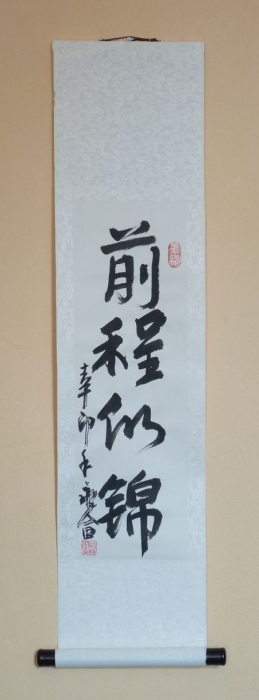 前程似锦
辛卯年